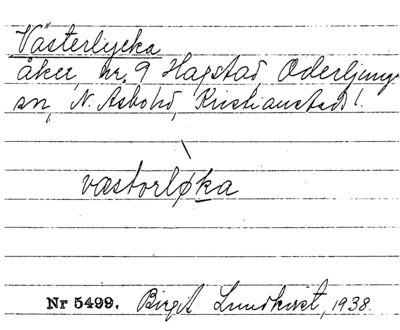 Västerlycka
åker, nr. 9 Hagstad Oderljunga
sn, N. Åsbo hd, Kristianstads l.
væstorløka
Nr 5499. Birgit Lundkvist, 1938.